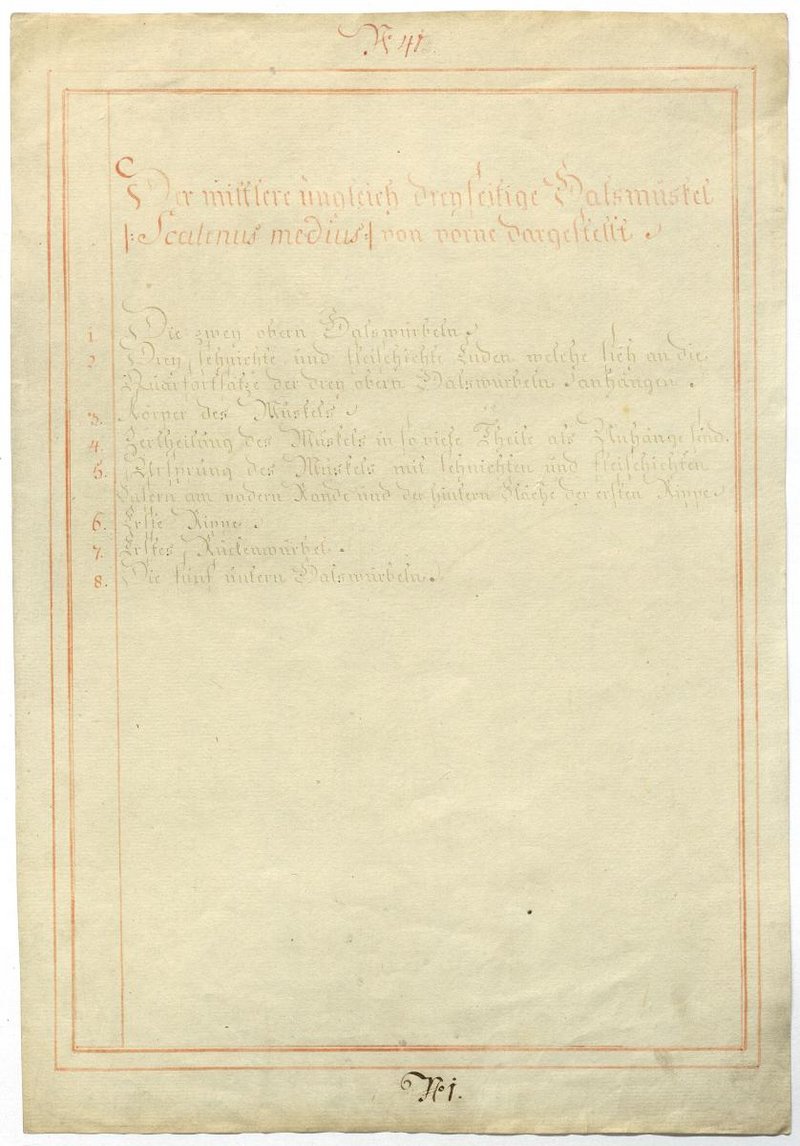 No 41.
Der mittlere ungleich dreyseitige Halsmuskel
|: Scalenus medius :| von vorne dargestellt.
1. Die zwey obern Halswürbeln.
2. Drey sehnichte und fleischichte Enden welche sich an die
Quärfortsätze der drey obern Halswürbeln anhängen.
3. Körper des Muskels.
4. Zertheilung des Muskels in so viele Theile als Anhänge sind.
5. Ursprung des Muskels mit sehnichten und fleischichten
Fasern am vodern Rande und der hintern Fläche der ersten Rippe.
6. Erste Rippe.
7. Erstes Ruckenwürbel.
8. Die fünf untern Halswürbeln.
No 1.